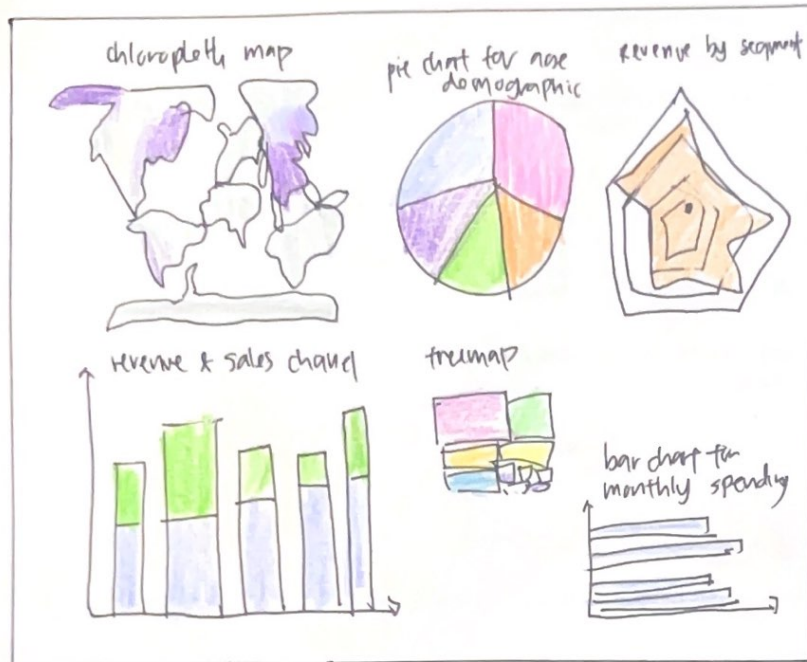 chloropleth map
pie chart for age
domographic
revenue by segment
revenue & sales channel
treemap
bar chart for
monthly spending